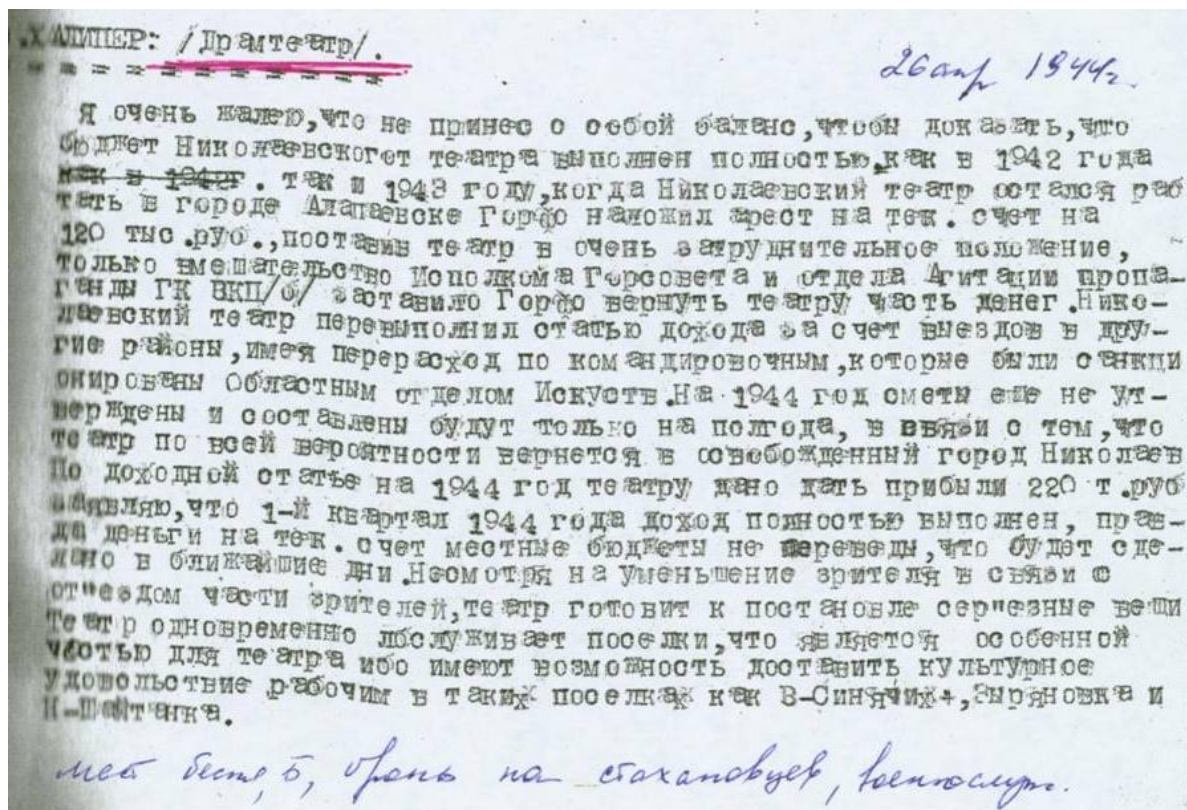 .ХАЛИПЕР: /Драмтеатр/.
26 апр 1944г.
Я очень жалею,что не принес с собой баланс,чтобы доказать,что
бюджет Николаевскогот театра выполнен полностью,как в 1942 года
как в 1942г. так и 1943 году,когда Николаевский театр остался раб
тать в городе Алапаевске Горфо наложил арест на тек. счет на
120 тыс.руб.,поставив театр в очень затруднительное положение,
только вмешательство Исполкома Горсовета и отдела Агитации пропа-
ганды ГК ВКП/б/ заставило Горфо вернуть театру часть денег.Нико-
лаевский театр перевыполнил статью дохода за счет выездов в дру-
гие районы,имея перерасход по командировочным,которые были санкци
онированы Областным отделом Искуств.На 1944 год сметы еще не ут-
верждены и составлены будут только на полгода, в связи с тем,что
театр по всей вероятности вернется в освобожденный город Николаев
По доходной статье на 1944 год театру дано дать прибыли 220 т.руб
заявляю,что 1-й квартал 1944 года доход полностью выполнен, прав-
да деньги на тек. счет местные бюджеты не переведы,что будет сде-
лано в ближайшие дни.Несмотря на уменьшение зрителя в связи с
от"ездом части зрителей,театр готовит к постановле сер"езные вещи
Театр одновременно лбслуживает поселки,что является особенной
частью для театра ибо имеют возможность доставить культурное
удовольствие рабочим в таких поселках как В-Синячих+,Зыряновка и
Н-Шайтанка.
бронь на стахановцев, военнослуж.